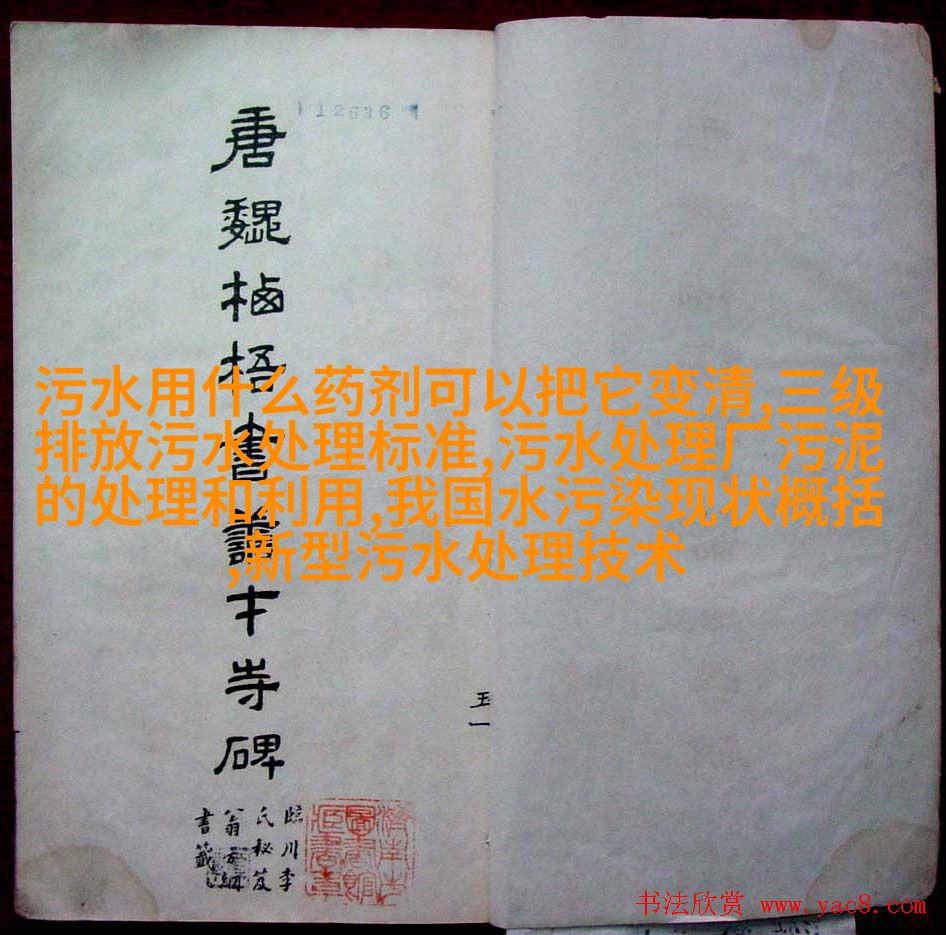 12636
唐魏栖梧書善才寺碑
臨川李
氏秘笈
翁方綱
書籤
濟南市
圖書館
藏書章
玉一
污水用什么药剂可以把它变清,三级
排放污水处理标准,污水处理厂污泥
的处理和利用,我国水污染现状概括
,新型污水处理技术
书法欣赏 www.yac8.com